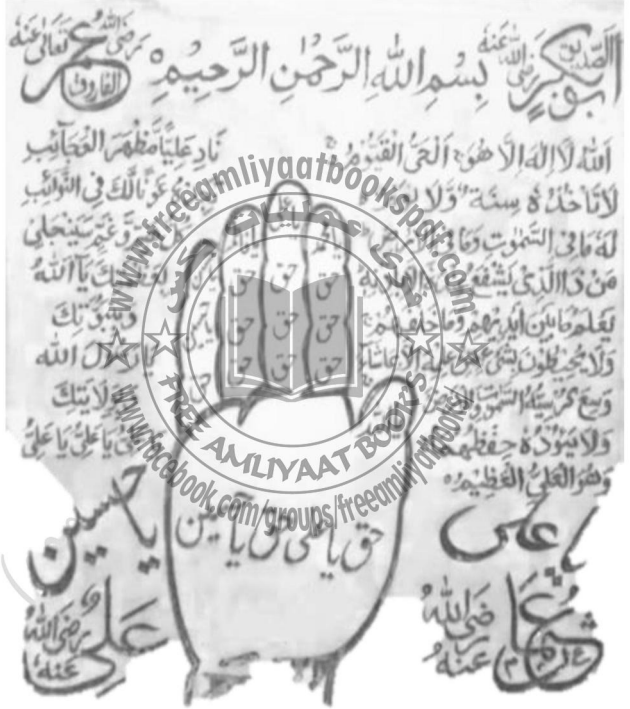 ابوبکر الصّدیق رضی اللہ عنہ
بِسْمِ اللهِ الرَّحْمٰنِ الرَّحِيْمِ
عمر الفاروق رضی اللہ تعالٰی عنہ
اَللهُ لَا اِلٰهَ اِلَّا هُوَ اَلْحَيُّ الْقَيُّوْمُ
لَا تَاْخُذُهٗ سِنَةٌ وَّلَا
لَهٗ مَا فِی السَّمٰوٰتِ وَمَا فِی
مَنْ ذَا الَّذِیْ يَشْفَعُ
يَعْلَمُ مَا بَيْنَ اَيْدِيْهِمْ وَمَا خَلْفَهُمْ
وَلَا يُحِيْطُوْنَ بِشَیْءٍ
وَسِعَ كُرْسِيُّهُ السَّمٰوٰتِ
وَلَا يَـُٔوْدُهٗ حِفْظُهُمَا
وَهُوَ الْعَلِیُّ الْعَظِيْمُ
نَادِ عَلِيًّا مَّظْهَرَ الْعَجَآئِبِ
عَوْنًا لَّكَ فِی النَّوَآئِبِ
وَّغَمٍّ سَيَنْجَلِیْ
يَآ اَللهُ
وَبِنُبُوَّتِكَ
يَا رَسُوْلَ الله
وَبِوَلَايَتِكَ
يَا عَلِیُّ يَا عَلِیُّ
حق حق حق
حق حق حق
حق حق حق
حق یا علی
یا علی
یا حسین
عثمان رضی اللہ عنہ
علی رضی اللہ عنہ
www.freeamliyaatbookspdf.com
فری عملیات بکس
FREE AMLIYAAT BOOKS
www.facebook.com/groups/freeamliyaatbooks/